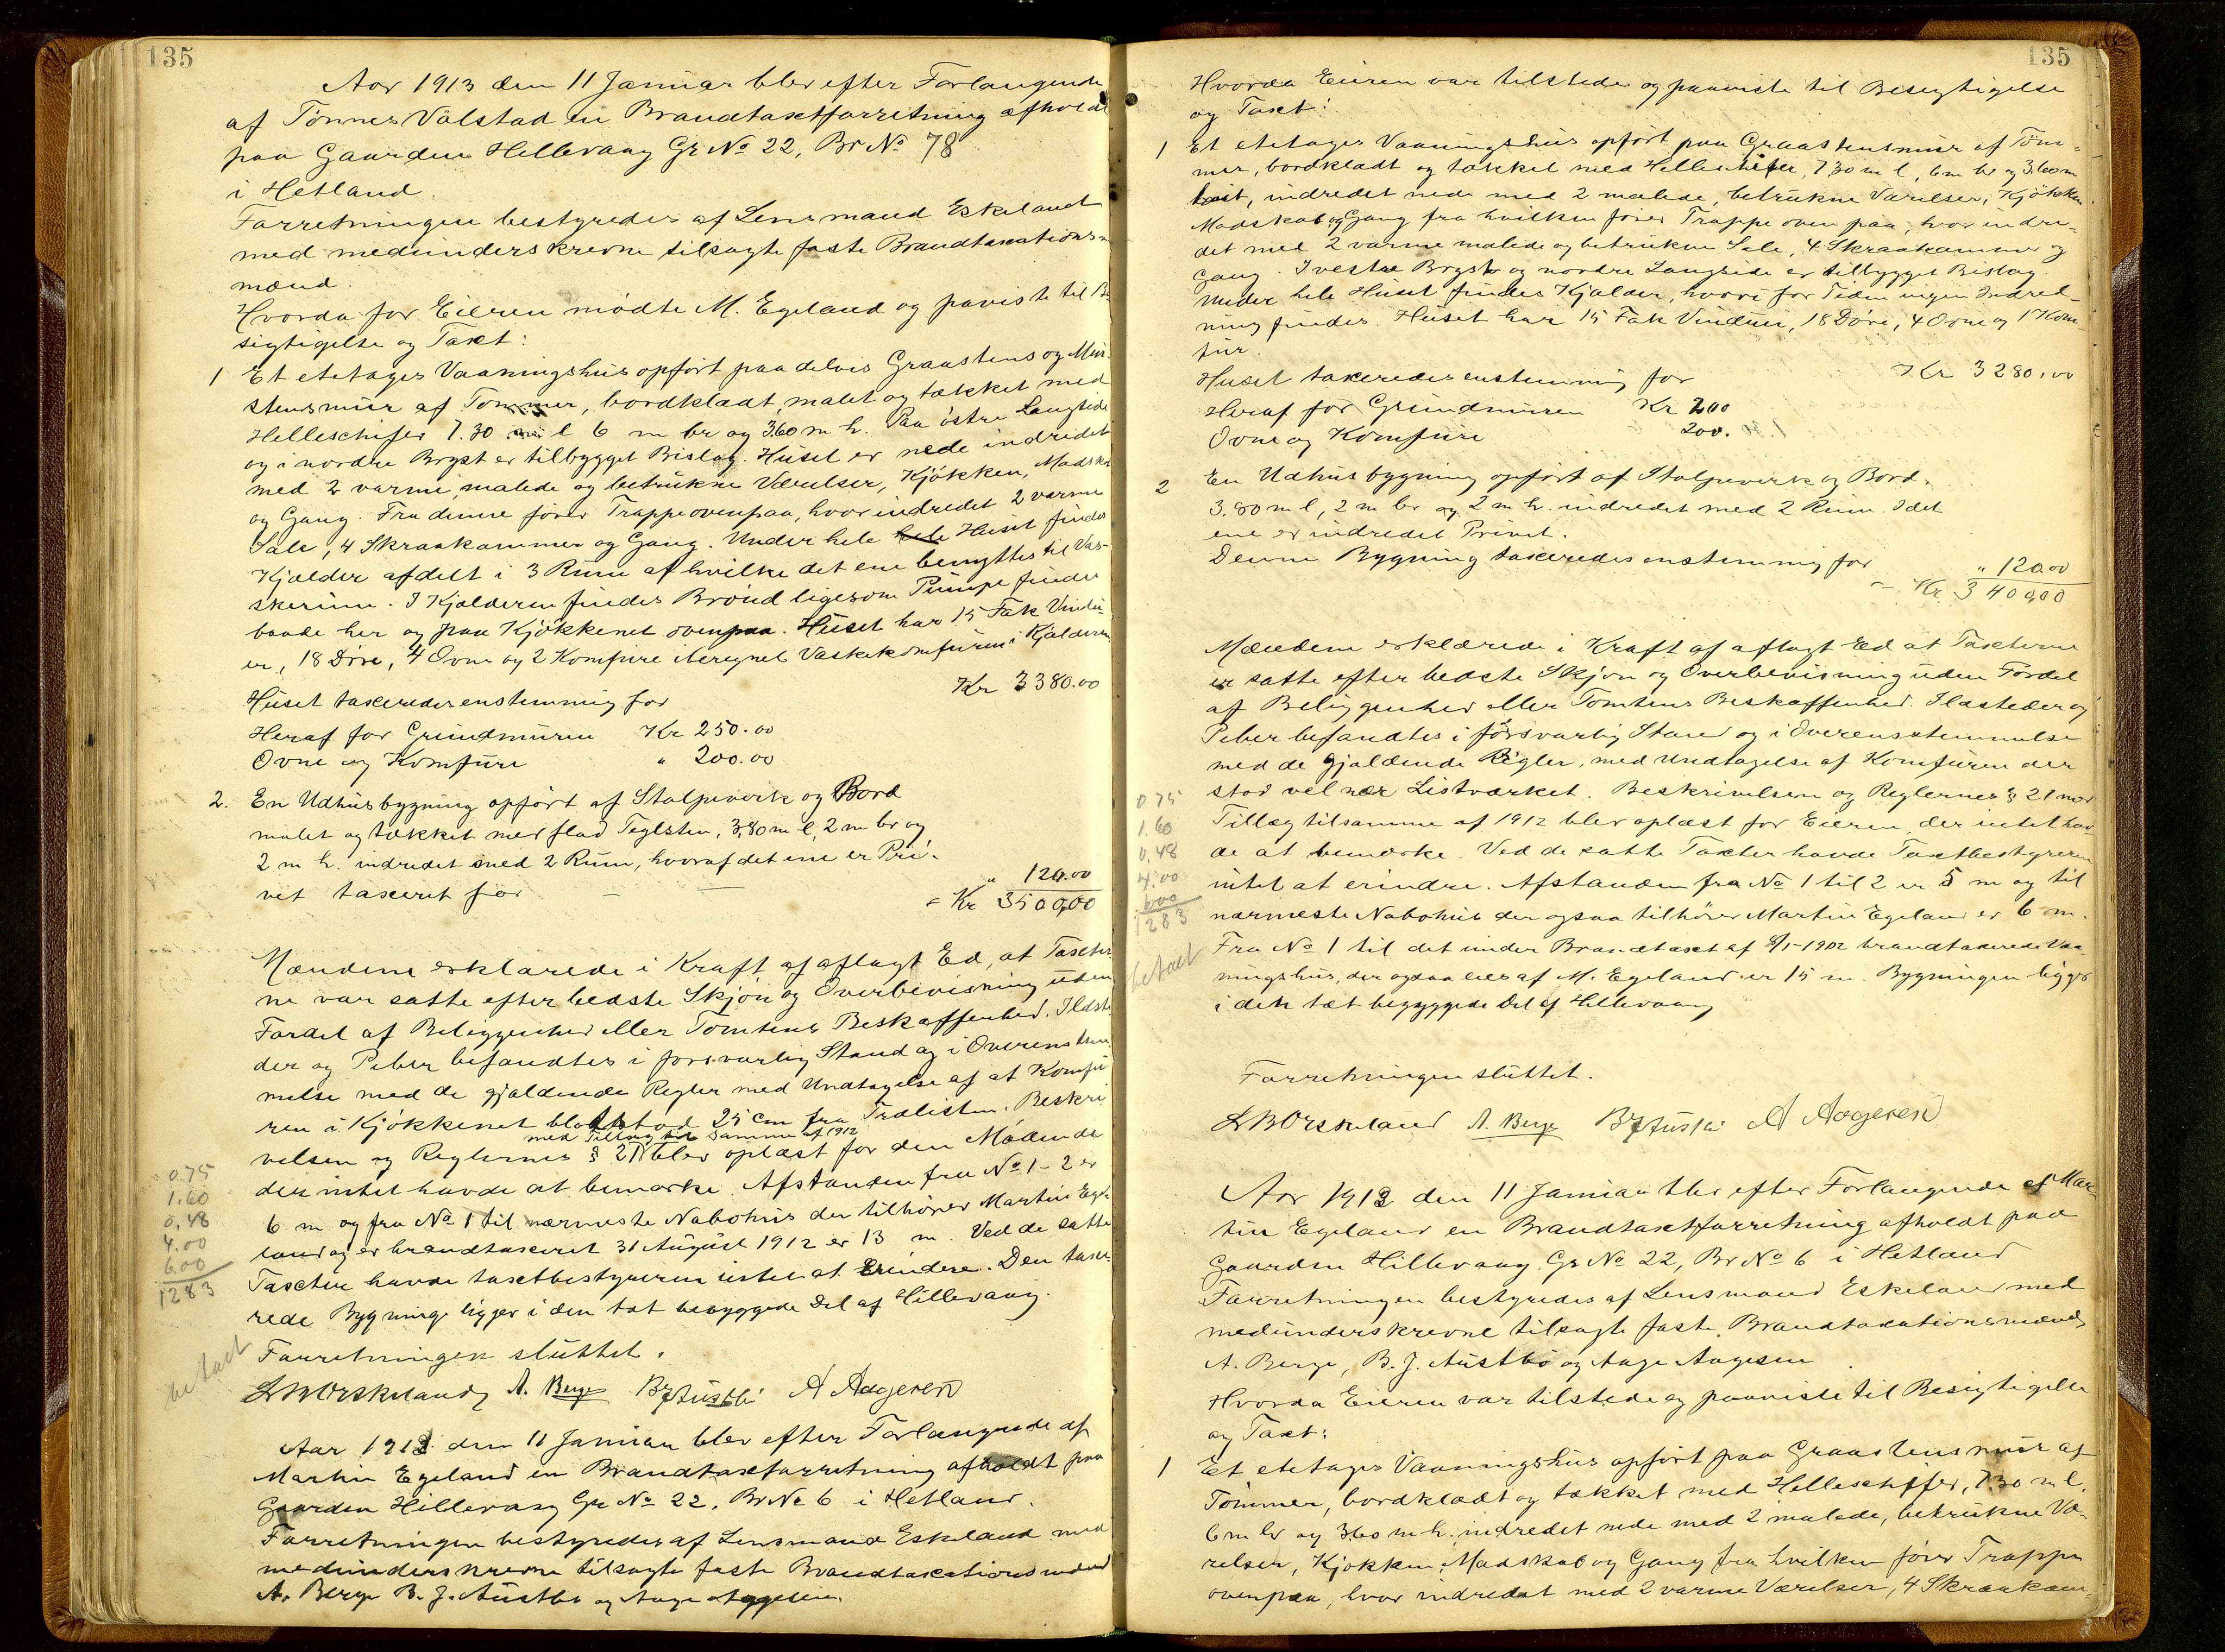 135
Aar 1913 den 11 Januar blev efter Forlangende
af Tønnes Valstad en Brandtaxtforretning afholdt
paa Gaarden Hillevaag Gr No 22, Br No 78
i Hetland.
Forretningen bestyredes af Lensmand Eskeland
med medunderskrevne tilsagte faste Brandtaxations-
mænd.
Hvorda for Eieren mødte M. Egeland og paviste til Be-
sigtigelse og Taxt:
1 Et etetages Vaaningshus opført paa delvis Graastens og Mur-
stensmur af Tømmer, bordklædt, malet og tækket med
Helleschifer 7.30 m l 6 m br og 3.60 m h. Paa østre Langside
og i nordre Bryst er tilbygget Bislag. Huset er nede indredet
med 2 varme, malede og betrukne Værelser, Kjøkken, Madskab
og Gang. Fra denne fører Trappe ovenpaa, hvor indredet 2 varme
Sale, 4 Skraakammer og Gang. Under hele hele Huset findes
Kjælder afdelt i 3 Rum af hvilke det ene benyttes til Vas-
kerum. I Kjælderen findes Brønd ligesom Pumpe findes
baade her og paa Kjøkkenet ovenpaa. Huset har 15 Fak Vindu-
er, 18 Døre, 4 Ovne og 2 Komfure iberegnet Vaskekomfuren i Kjælderen
Huset taxeredes enstemmig for Kr 3380.00
Heraf for Grundmuren Kr 250.00
Ovne og Komfure " 200.00
2. En Udhusbygning opført af Stolpeverk og Bord
malet og tækket med flad Teglsten, 3,80 m l, 2 m br og
2 m h. indredet med 2 Rum, hvoraf det ene er Pri-
vet taxeret for " 120.00
= Kr 3500,00
Mændene erklærede i Kraft af aflagt Ed, at Taxter-
ne var satte efter bedste Skjøn og Overbevisning uden
Fordel af Beliggenhed eller Tomtens Beskaffenhed. Ildste-
der og Piber befandtes i forsvarlig Stand og i Overenstem-
melse med de gjældende Regler med Undtagelse af at Komfu-
ren i Kjøkkenet blot stod 25 cm fra Trælisten. Beskri-
med Tillæg til samme af 1912
velsen og Reglernes § 21 blev oplæst for den Mødende
der intet havde at bemærke. Afstanden fra No 1-2 er
6 m og fra No 1 til nærmeste Nabohus der tilhører Martin Ege-
land og er brandtaxeret 31 August 1912 er 13 m. Ved de satte
Taxter havde taxtbestyreren intet at Erindre. Den taxe-
rede Bygninge ligger i den tæt bebyggede Del af Hillevaag.
0.75
1.60
0,48
4.00
6.00
1283
betalt
Forretningen sluttet.
A. Berge A Aagesen
Aar 1913 den 11 Januar blev efter Forlangende af
Martin Egeland en Brandtaxtforretning afholdt paa
Gaarden Hillevaag Gr No 22, Br No 6 i Hetland.
Forretningen bestyredes af Lensmand Eskeland med
medunderskrevne tilsagte faste Brandtaxationsmænd
A. Berge B. J. Austbø og Aage Aagesen.
135
Hvorda Eieren var tilstede og paaviste til Besigtigelse
og Taxt:
1 Et etetages Vaaningshus opført paa Graastensmur af Tøm-
mer, bordklædt og tækket med Helleschifer, 7,30 m l, 6 m br og 3.60 m
høit, indredet nede med 2 malede, betrukne Værelser, Kjøkken
Madskab og Gang fra hvilken fører Trappe oven paa, hvor indre-
det med 2 varme malede og betrukne Sale, 4 Skraakammer og
Gang. I vestre Bryst og nordre Langside er tilbygget Bislag.
Under hele Huset findes Kjælder, hvori for Tiden ingen Indred-
ning findes. Huset har 15 Fak Vinduer, 18 Døre, 4 Ovne og 1 Kom-
fur.
Huset taxeredes enstemmig for Kr 3280.00
Heraf for Grundmuren Kr 200
Ovne og Komfure 200.
2 En Udhusbygning opført af Stolpeverk og Bord.
3.80 m l, 2 m br og 2 m h. indredet med 2 Rum. I det
ene er indredet Privet.
Denne Bygning taxeredes enstemmig for " 120.00
= Kr. 3400,00
Mændene erklærede i Kraft af aflagt Ed at Taxterne
er satte efter bedste Skjøn og Overbevisning uden Fordel
af Beliggenhed eller Tomtens Beskaffenhed. Ildsteder og
Piber befandtes i forsvarlig Stand og i Overensstemmelse
med de gjældende Regler, med Undtagelse af Komfuren der
stod vel nær Listværket. Beskrivelsen og Reglernes § 21 med
Tillæg til samme af 1912 blev oplæst for Eieren, der intet hav-
de at bemærke. Ved de satte Taxter havde Taxtbestyreren
intet at erindre. Afstanden fra No 1 til 2 er 5 m og til
nærmeste Nabohus der ogsaa tilhører Martin Egeland er 6 m.
Fra No 1 til det under Brandtaxt af 8/1-1902 brandtaxerede Vaa-
ningshus, der ogsaa eies af M. Egeland er 15 m. Bygningen ligger
i den tæt bebyggede Del af Hillevaag
0.75
1.60
0,48
4.00
600
1283
betalt
Forretningen sluttet.
A. Berge A Aagesen
Aar 1913 den 11 Januar blev efter Forlangende af Mar-
tin Egeland en Brandtaxtforretning afholdt paa
Gaarden Hillevaag Gr No 22, Br No 6 i Hetland
Forretningen bestyredes af Lensmand Eskeland med
medunderskrevne tilsagte faste Brandtaxationsmænd,
A. Berge, B. J. Austbø og Aage Aagesen.
Hvorda Eieren var tilstede og paaviste til Besigtigelse
og Taxt:
1 Et etetages Vaaningshus opført paa Graastensmur af
Tømmer, bordklædt og tækket med Helleschiffer, 7.30 m l.
6 m br og 3.60 m h. indredet nede med 2 malede, betrukne Væ-
relser, Kjøkken, Madskab og Gang fra hvilken fører Trappe
ovenpaa, hvor indredet med 2 varme Værelser, 4 Skraakam-